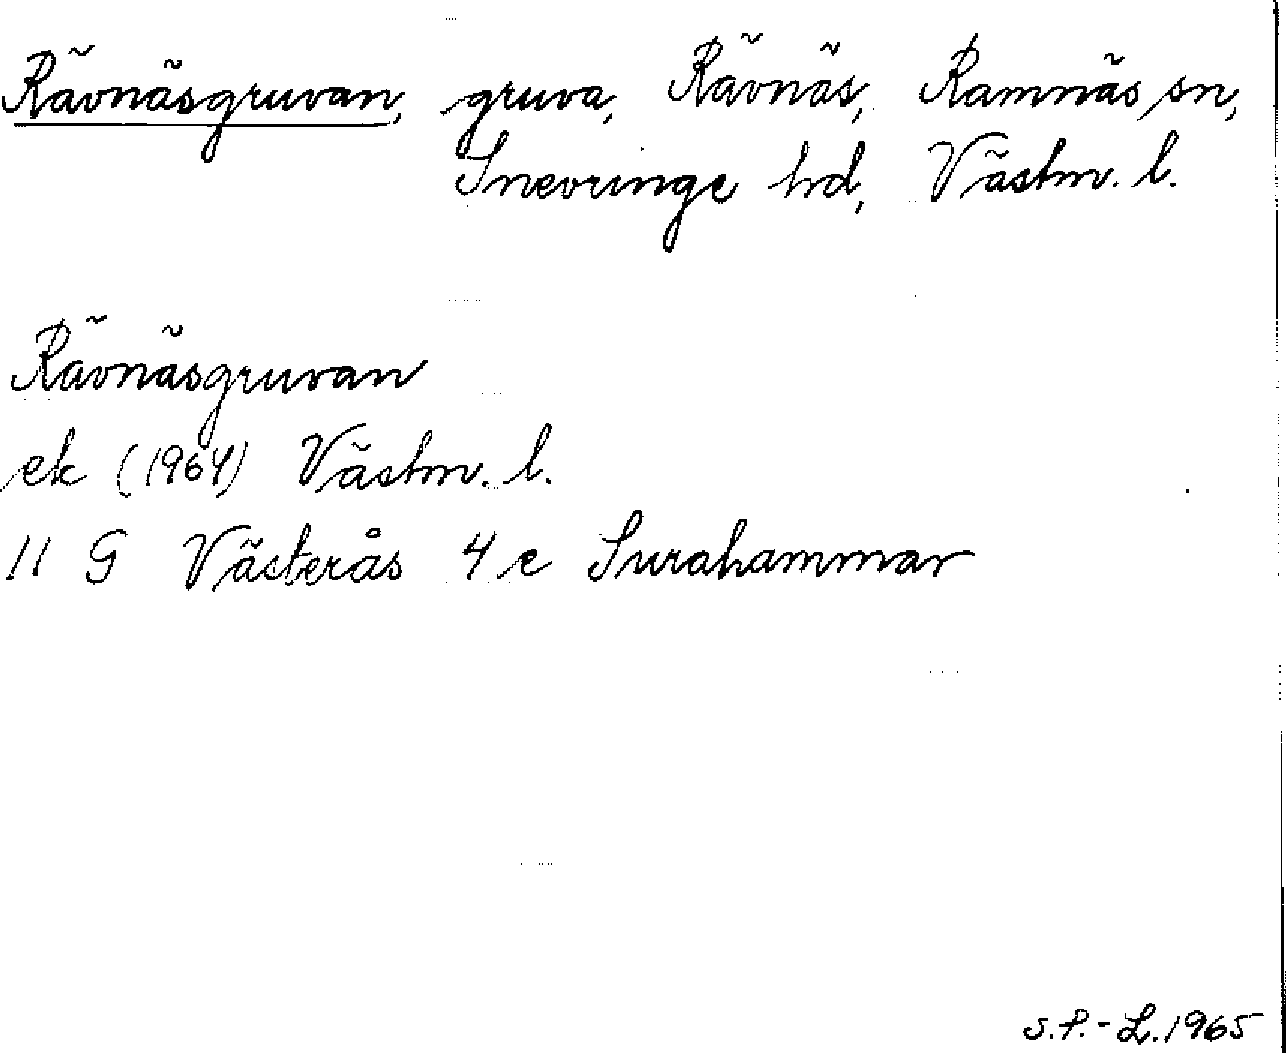 Rävnäsgruvan, gruva, Rävnäs, Ramnäs sn,
Snevringe hd, Västm. l.
Rävnäsgruvan
ek (1964) Västm. l.
11 G Västerås 4 e Surahammar
S.P.-L. 1965